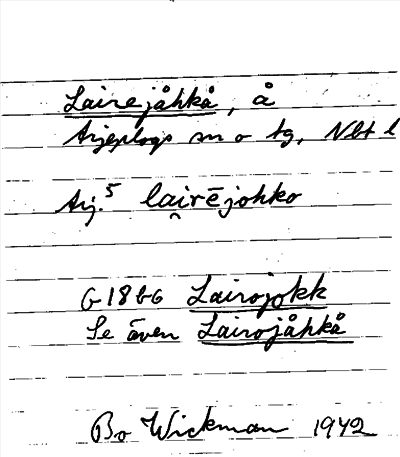 Lairejåhkå, å
Arjeplogs sn o tg, Nbt l
Arj.⁵ lai̭rējohko
G 1866 Lairojokk
Se även Lairojåhkå
Bo Wickman 1942